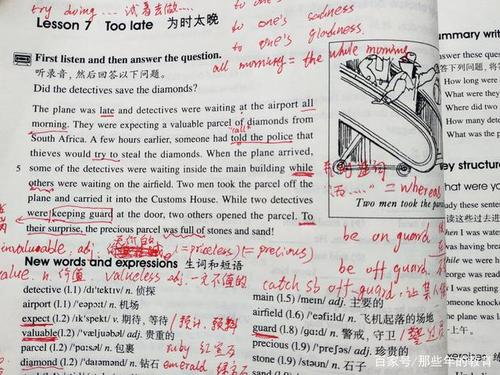 try doing.... 试着去做....
Lesson 7 Too late 为时太晚
to one's sadness
to one's gladness.
all morning = the whole morning
First listen and then answer the question.
听录音，然后回答以下问题。
Did the detectives save the diamonds?
The plane was late and detectives were waiting at the airport all
morning. They were expecting a valuable parcel of diamonds from
"call"
South Africa. A few hours earlier, someone had told the police that
thieves would try to steal the diamonds. When the plane arrived,
5 some of the detectives were waiting inside the main building while
others were waiting on the airfield. Two men took the parcel off the
plane and carried it into the Customs House. While two detectives
were keeping guard at the door, two others opened the parcel. To
their surprise, the precious parcel was full of stones and sand!
= whereas
Two men took the par
be on guard
be off guard.
catch sb off guard,
invaluable, adj. (=priceless) (= precious)
value. n. 价值. valueless adj. 一文不值的
New words and expressions 生词和短语
detective (l.1) /dɪ'tektɪv/ n. 侦探
airport (l.1) /'eəpɔ:t/ n. 机场
expect (l.2) /ɪk'spekt/ v. 期待，等待
valuable(l.2) /'væljuəbəl/ adj. 贵重的
parcel (l.2) /'pɑ:səl/ n. 包裹
ruby
diamond (l.2) /'daɪəmənd/ n. 钻石
emerald
main (l.5) /meɪn/ adj. 主要的
airfield (l.6) /'eəfi:ld/ n. 飞机起落的场地
guard (l.8) /gɑ:d/ n. 警戒，守卫
precious (l.9) /'preʃəs/ adj. 珍贵的
stone (l.9) /stəun/ n. 石子
mmary writ
swer these que
答下列问题，将
How long were
What were they
Where did two
How many dete
What was the p
ey structure
hat were you
ead these sent
读这些过去进
hen I was wate
was having bre
hile we were h
George was rea
As I was getting
someone knock
What were you
上午。
exercises
百家号/那些年的教育